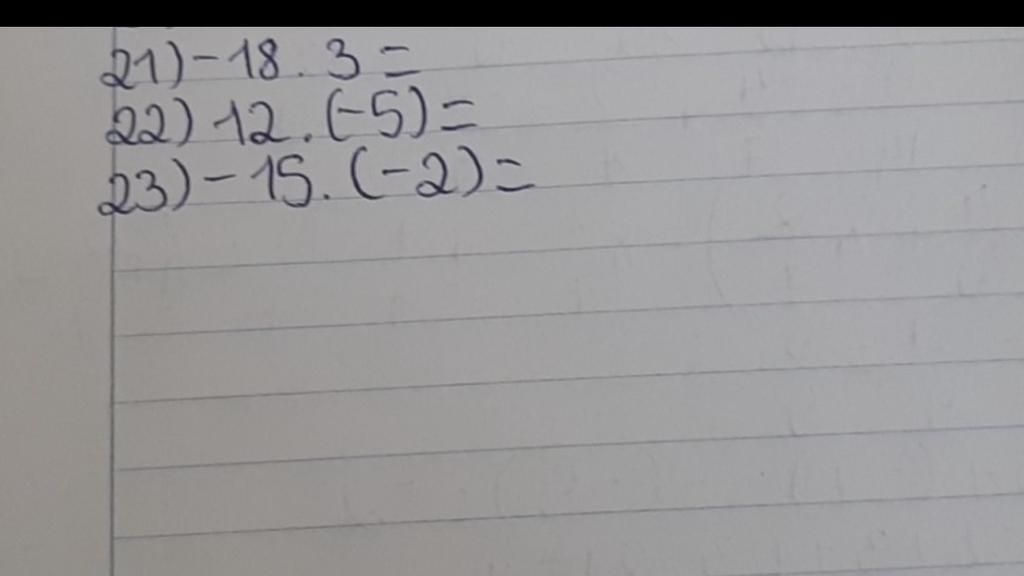 21) -18. 3 =
22) 12. (-5) =
23) - 15. (-2) =